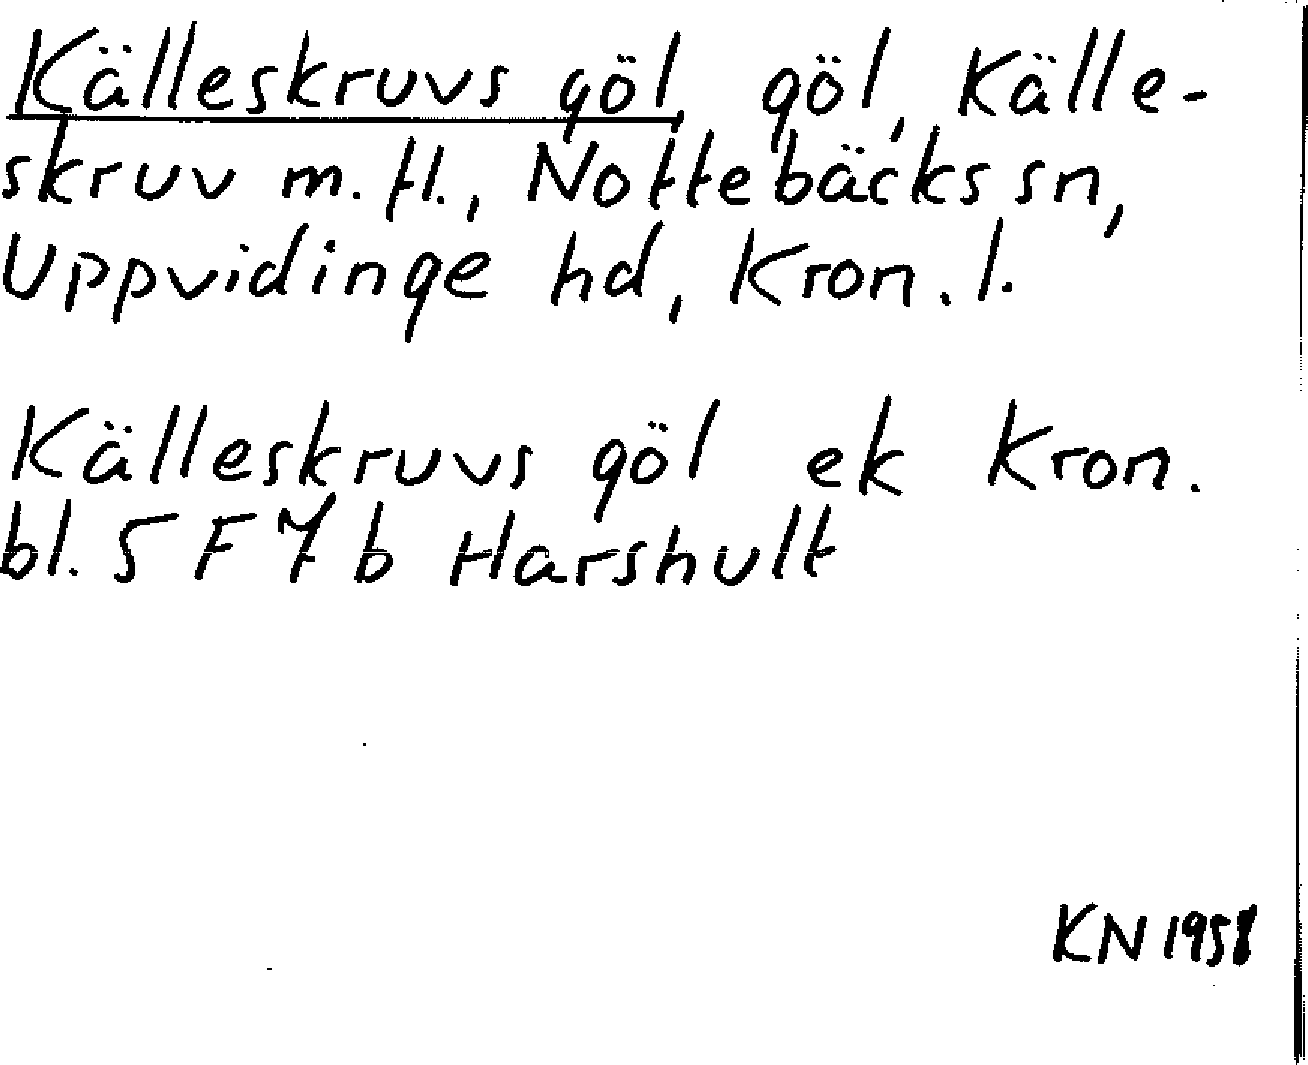 Källeskruvs göl, göl, Källe-
skruv m.fl., Nottebäcks sn,
Uppvidinge hd, Kron. l.
Källeskruvs göl ek Kron.
bl. 5 F 7 b Harshult
KN 1958